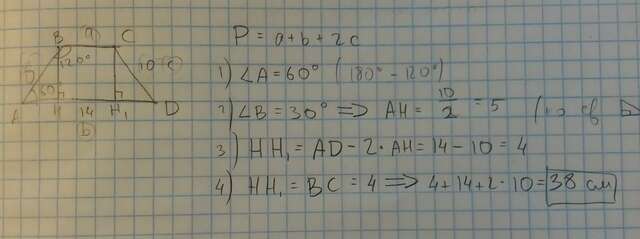 P = a+b+2c
B a C
10 120° 10 c
1) ∠A=60° (180° - 120°)
60°
A H 14 H₁ D
b
2) ∠B=30° ⟹ AH = 10/2 = 5 (по св
3) HH₁ = AD - 2·AH = 14 - 10 = 4
4) HH₁ = BC = 4 ⟹ 4+14+2·10=38 см